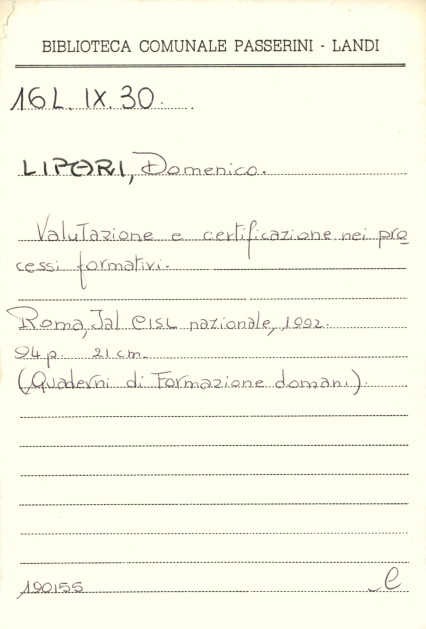 BIBLIOTECA COMUNALE PASSERINI - LANDI
16L. IX. 30.
LIPARI, Domenico.
Valutazione e certificazione nei pro
cessi formativi.
Roma, Jal CISL nazionale, 1992.
94 p. 21 cm.
(Quaderni di Formazione domani).
190155